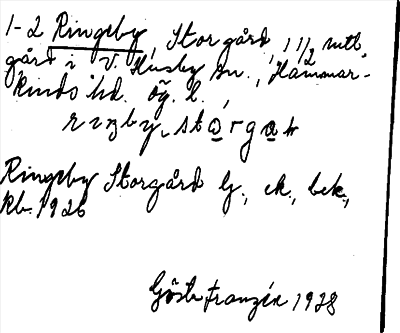 1-2 Ringsby, Storgård, 1 1/2 mtl.
gård i V. Husby sn., Hammar-
kinds hd. Ög. l.,
riŋby, stọrgọḷ
Ringsby Storgård G., ek., bek.,
Kb. 1926
Gösta Franzén 1928